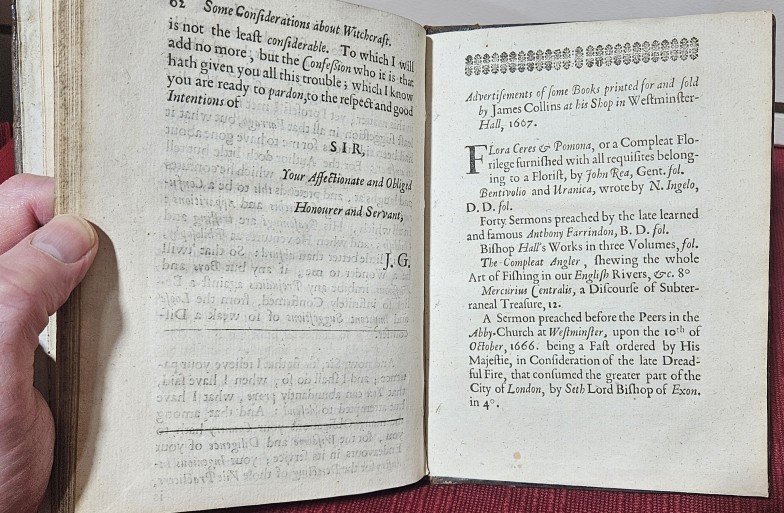 62 Some Considerations about Witchcraft.
is not the least considerable. To which I will
add no more, but the Confession who it is that
hath given you all this trouble; which I know
you are ready to pardon, to the respect and good
Intentions of
SIR,
Your Affectionate and Obliged
Honourer and Servant,
J. G.
Advertisements of some Books printed for and sold
by James Collins at his Shop in Westminster-
Hall, 1667.
FLora Ceres & Pomona, or a Compleat Flo-
rilege furnished with all requisites belong-
ing to a Florist, by John Rea, Gent. fol.
Bentivolio and Uranica, wrote by N. Ingelo,
D. D. fol.
Forty Sermons preached by the late learned
and famous Anthony Farrindon, B. D. fol.
Bishop Hall's Works in three Volumes, fol.
The Compleat Angler, shewing the whole
Art of Fishing in our English Rivers, &c. 8°
Mercurius Centralis, a Discourse of Subter-
raneal Treasure, 12.
A Sermon preached before the Peers in the
Abby-Church at Westminster, upon the 10th of
October, 1666. being a Fast ordered by His
Majestie, in Consideration of the late Dread-
ful Fire, that consumed the greater part of the
City of London, by Seth Lord Bishop of Exon.
in 4°.